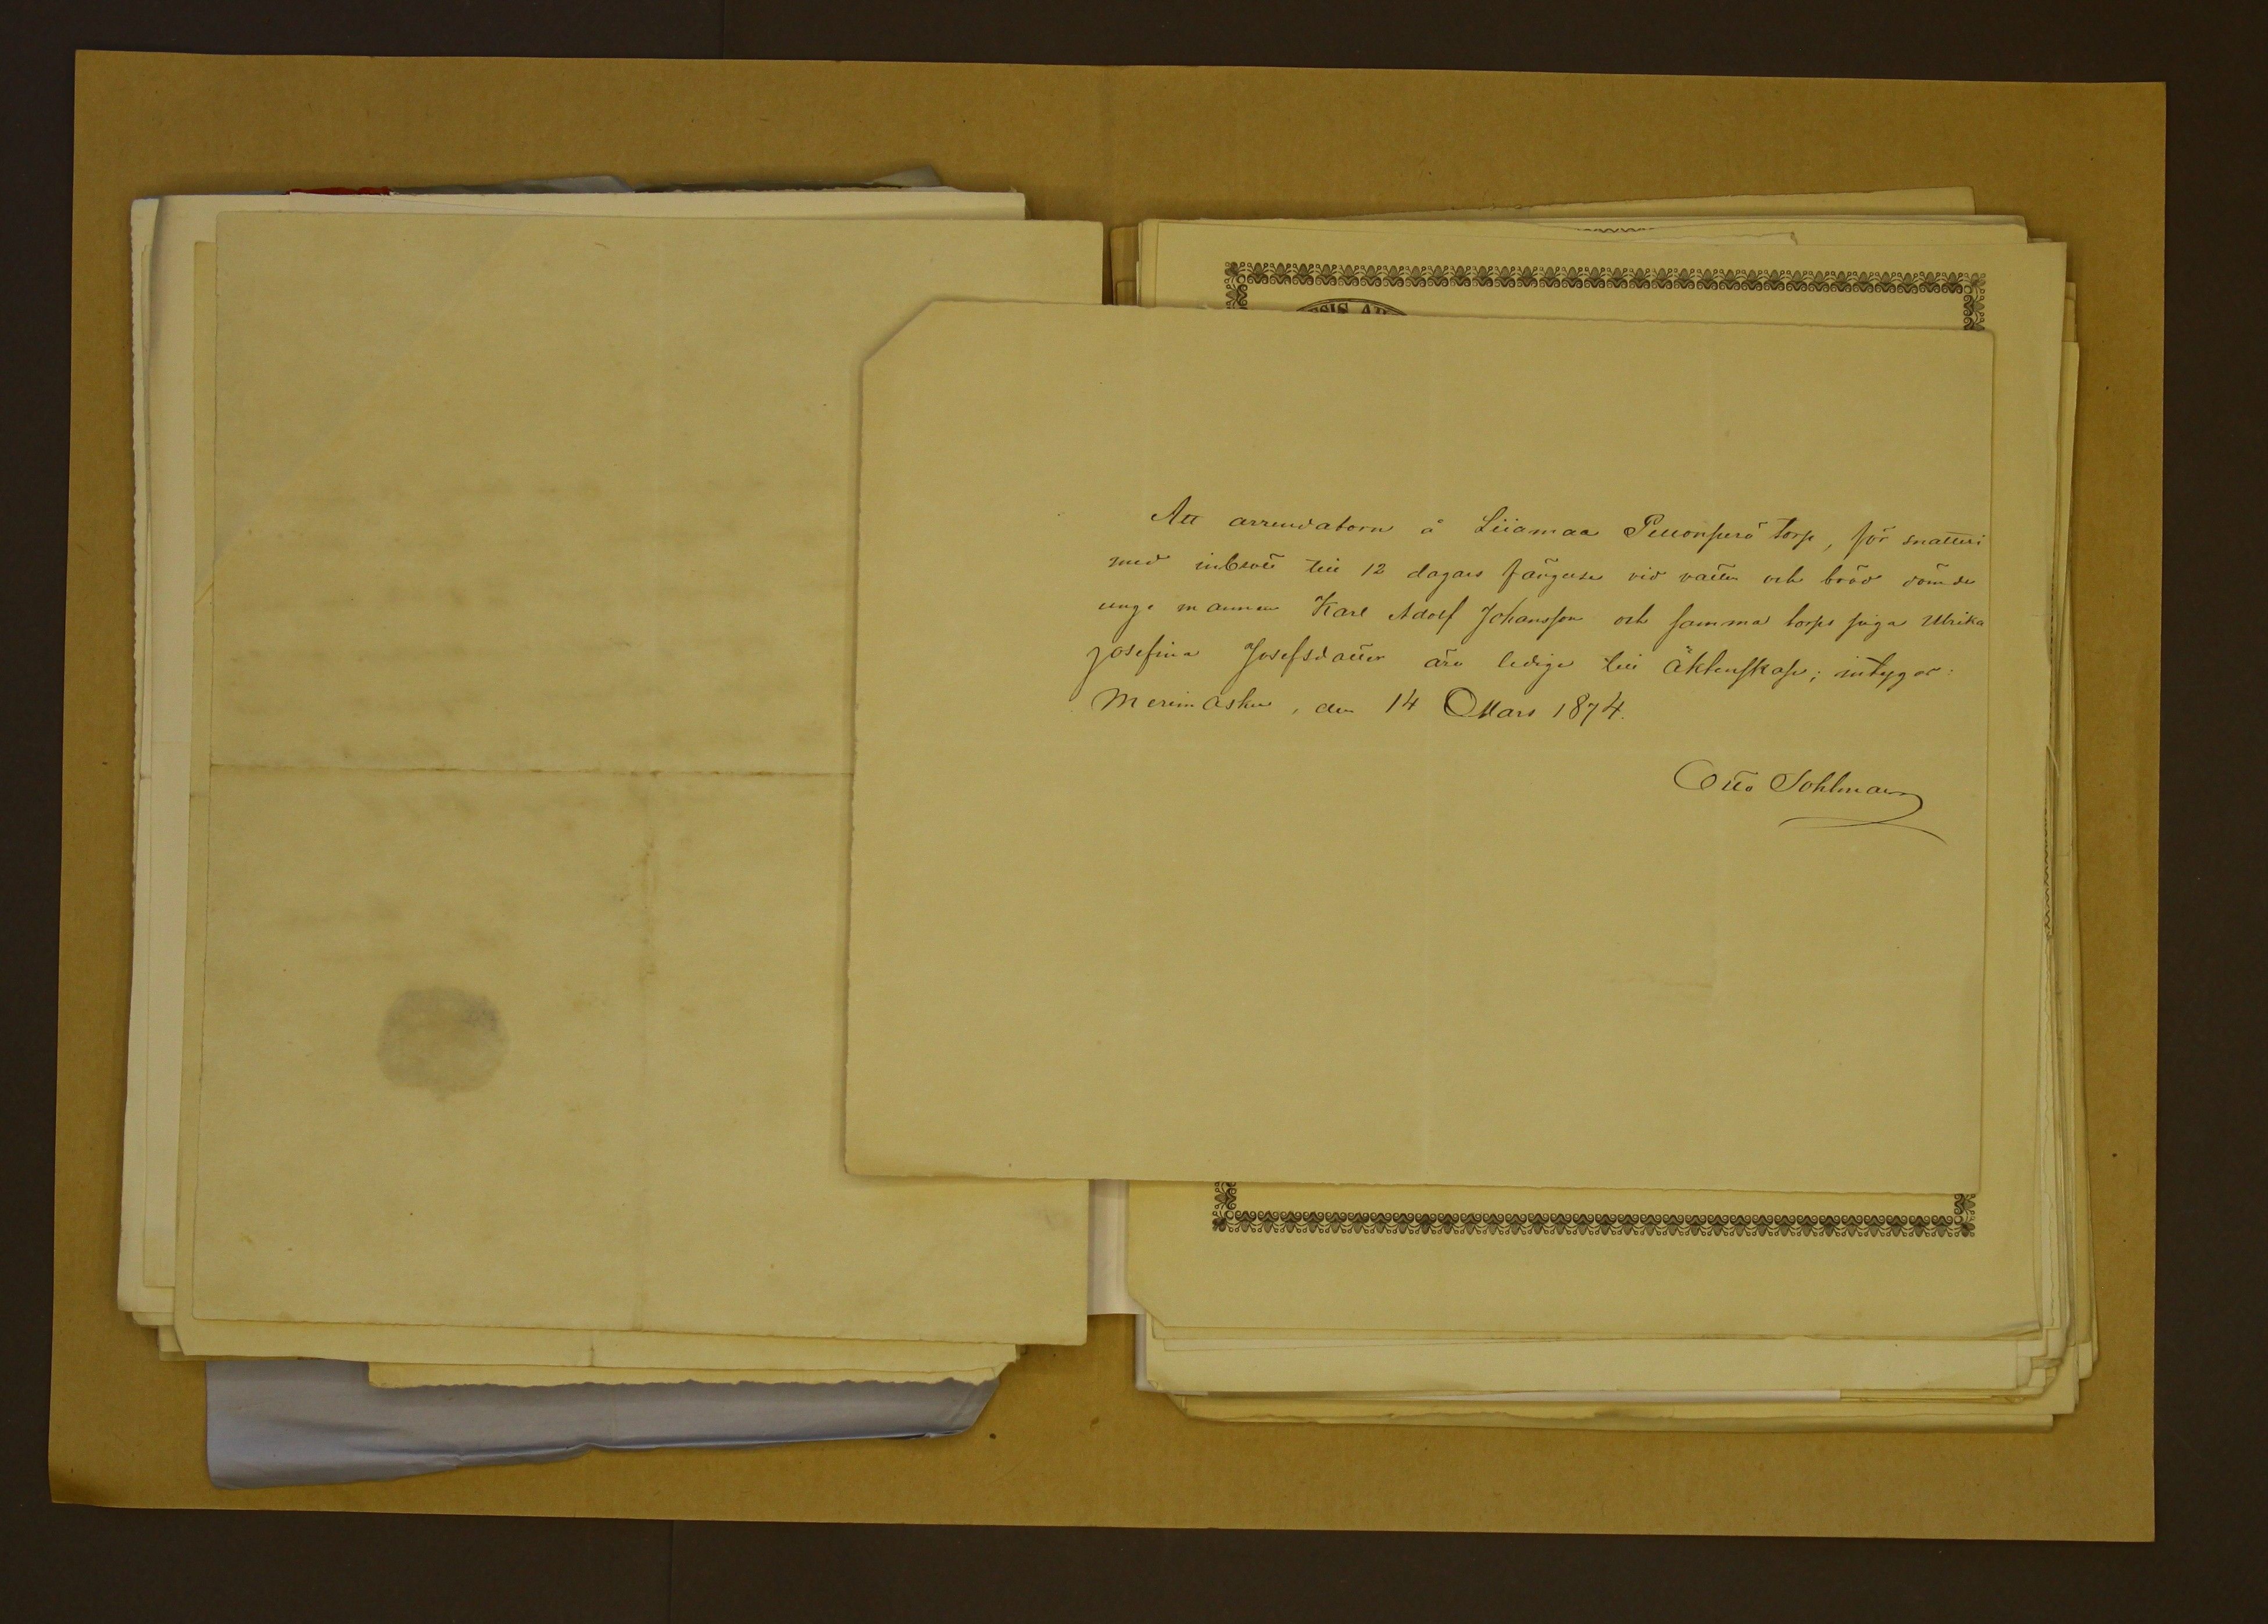 ESIS
Att arrendatorn å Liiamaa Pellonperä torp, för snatteri
med inbrott till 12 dagars fängelse vid vatten och bröd dömde
unge mannen Karl Adolf Johansson och samma torps piga Ulrika
Josefina Josefsdotter äro lediga till äktenskap; intygar:
Merimasku, den 14 Mars 1874.
Otto Sohlman